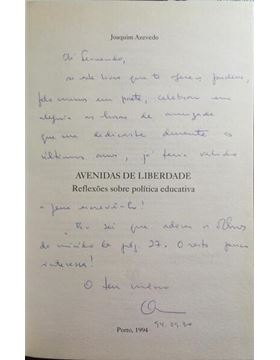 Joaquim Azevedo
Oi Fernando,
se este livro que te ofereço pudesse,
pelo menos em parte, celebrar em
alegria as horas de amizade
que me dedicaste durante os
últimos anos, já teria valido
AVENIDAS DE LIBERDADE
Reflexões sobre política educativa
a pena escrevê-lo!
sei que adoras o
de pág. 27. O resto pouco
interessa!
O teu amigo
94.09.30
Porto, 1994